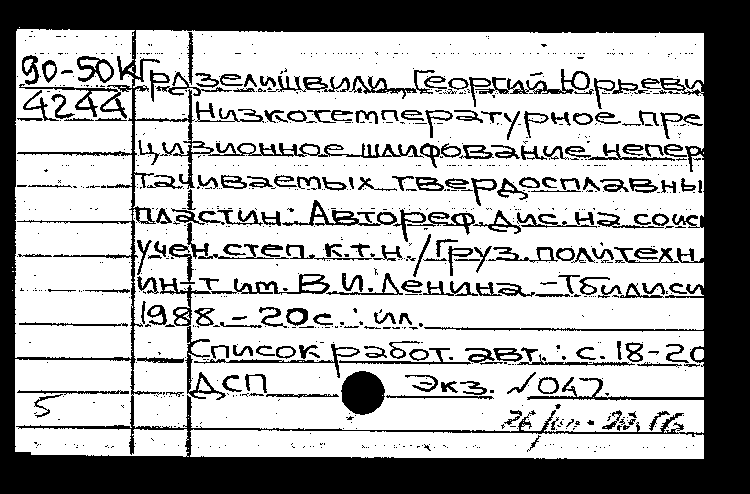 90-50К Грдзелишвили, Георгий Юрьеви
4244 Низкотемпературное пре
цизионное шлифование непер
тачиваемых твердосплавны
пластин: Автореф. дис. на соиск
учен. степ. к.т.н. / Груз. политехн.
ин-т им. В.И. Ленина. - Тбилиси
1988. - 20 с. : ил.
Список работ. авт. : с. 18-20
ДСП Экз. №047.
5